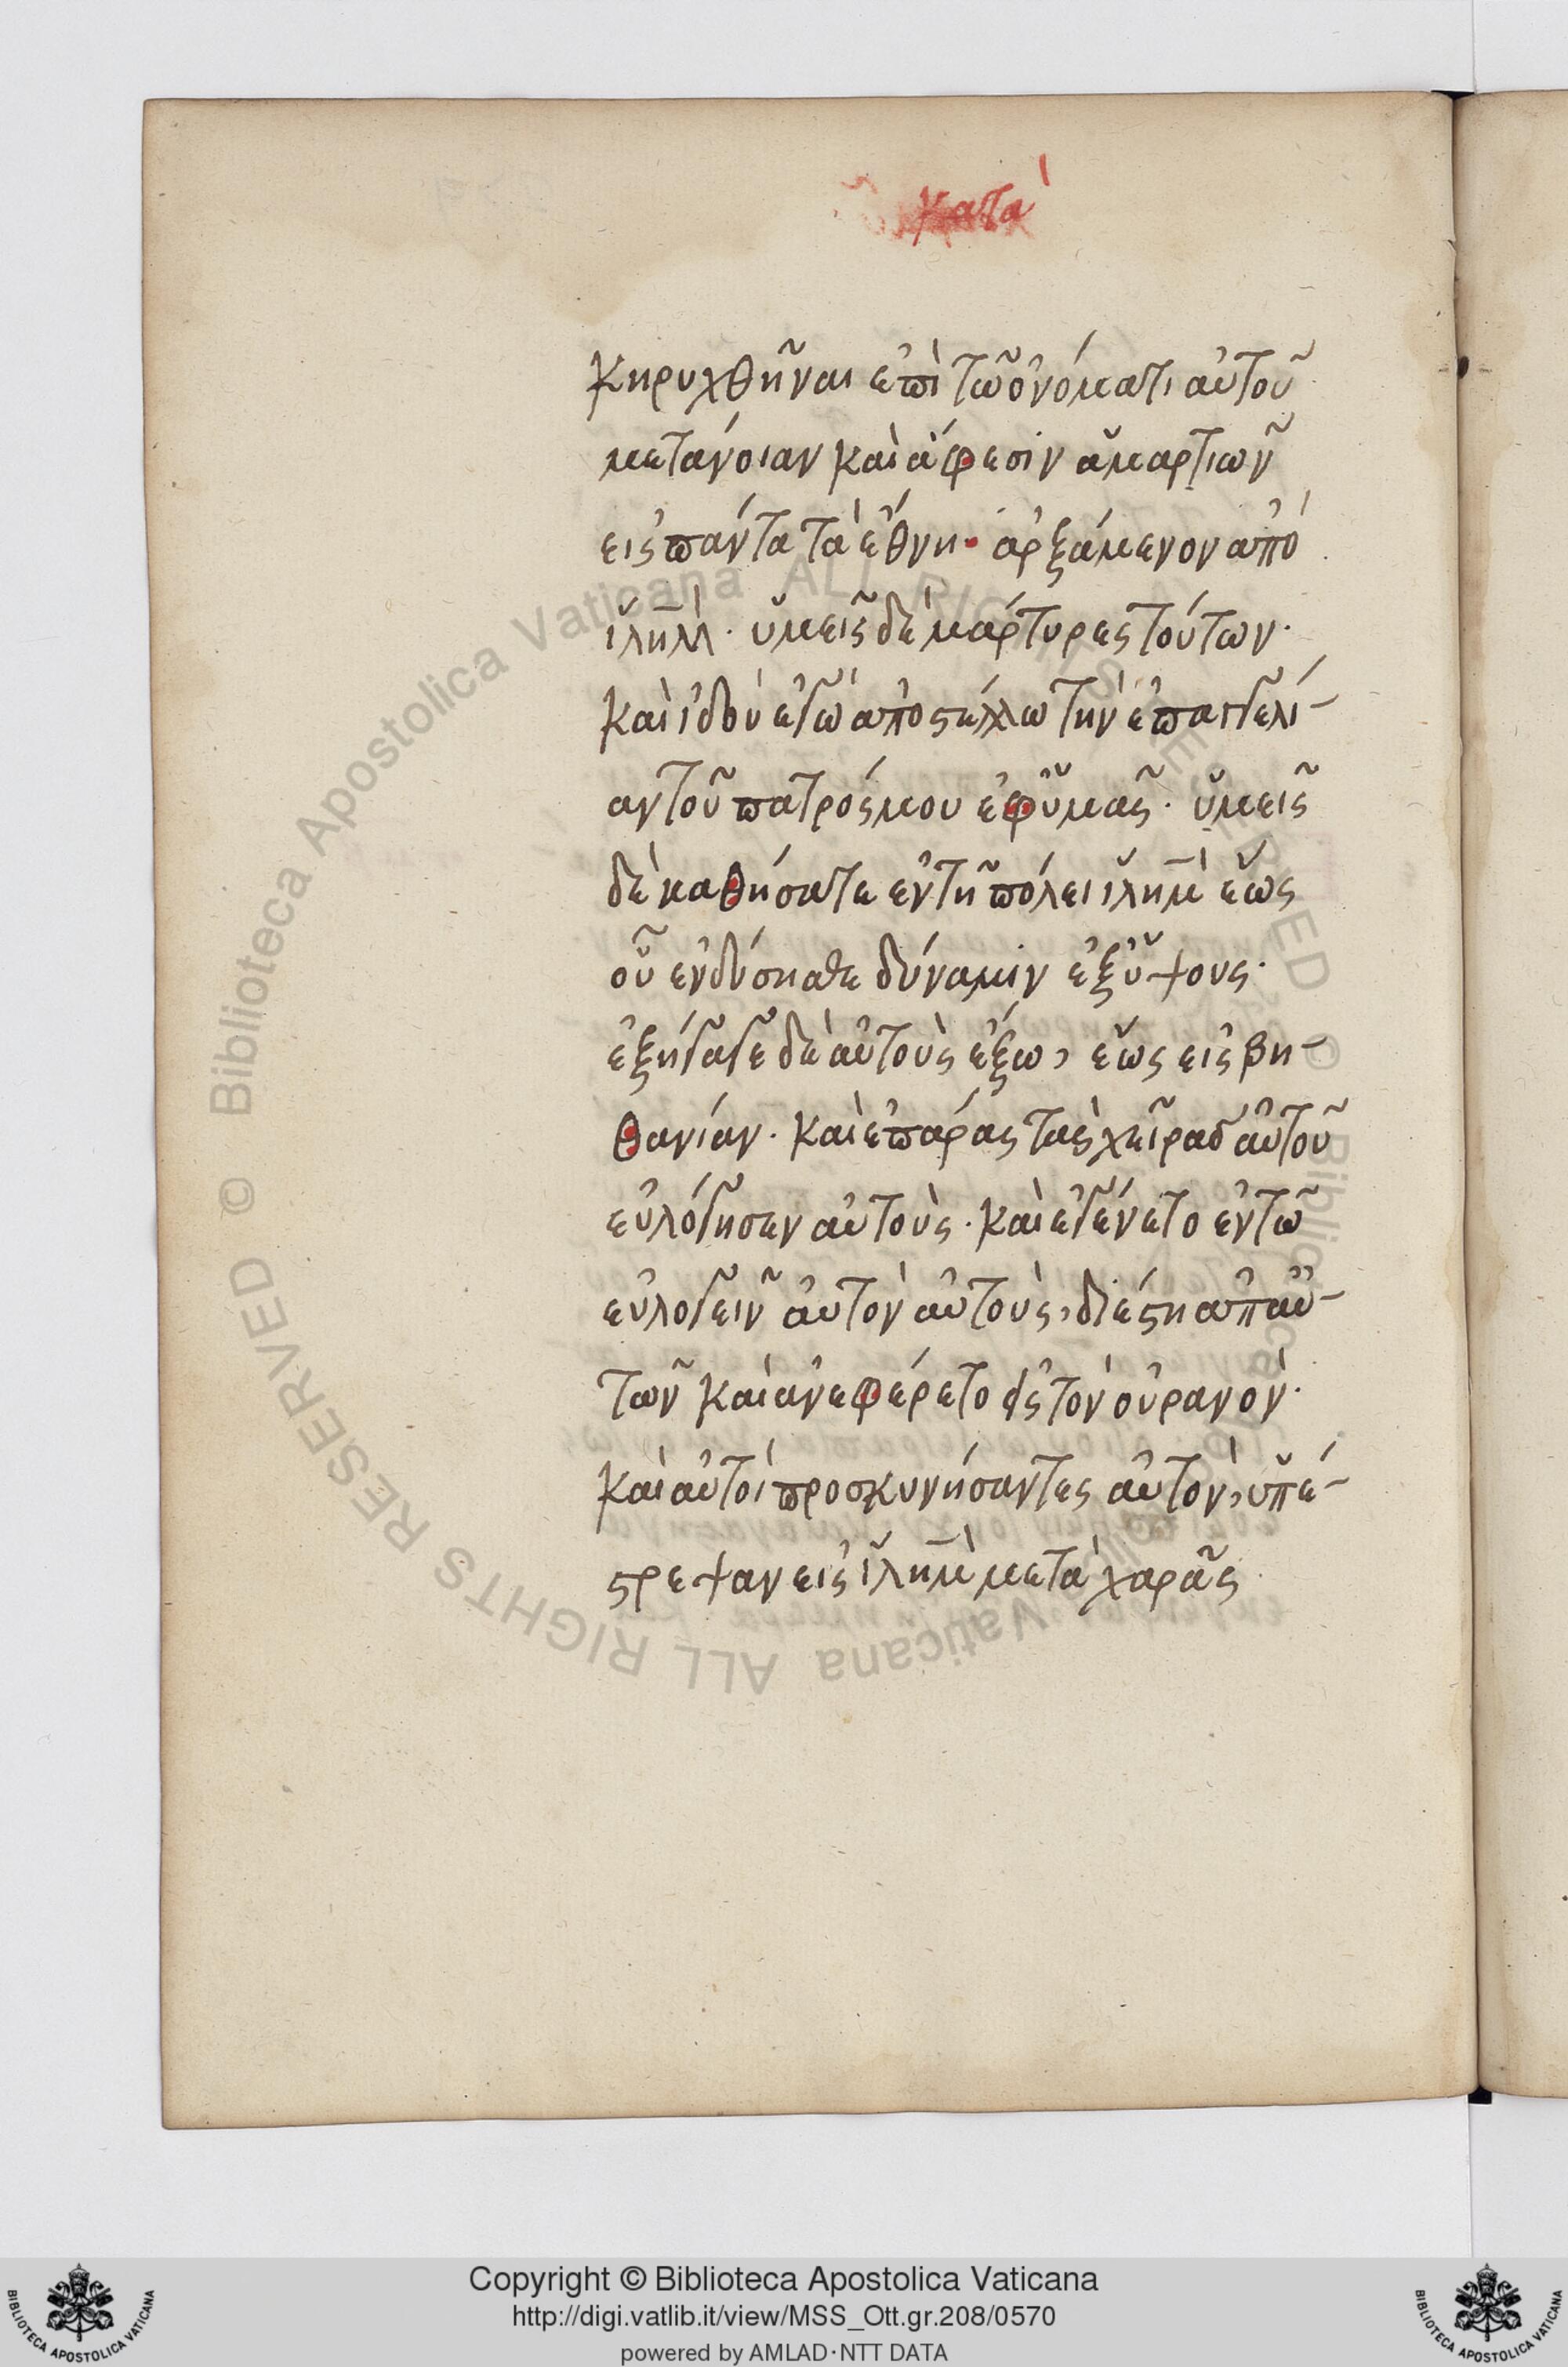 κατὰ
κηρυχθῆναι ἐπὶ τῶ ὀνόματι αὐτοῦ
μετάνοιαν καὶ ἄφεσιν ἁμαρτιῶν
εἰς πάντα τὰ ἔθνη· ἀρξάμενον ἀπὸ
ἱλημ̅· ὑμεῖς δὲ μάρτυρες τούτων·
καὶ ἰδοὺ ἐγὼ ἀποστέλλω τὴν ἐπαγγελί-
αν τοῦ πατρός μου ἐφ ὑμᾶς· ὑμεῖς
δὲ καθήσατε ἐν τῆ πόλει ἱλημ̅ ἕως
οὗ ἐνδύσησθε δύναμιν ἐξ ὕψους·
ἐξήγαγε δὲ αὐτοὺς ἔξω, ἕως εἰς βη-
θανίαν· καὶ ἐπάρας τὰς χεῖρας αὐτοῦ
εὐλόγησεν αὐτοὺς· καὶ ἐγένετο ἐν τῶ
εὐλογεῖν αὐτὸν αὐτοὺς, διέστη ἀπ αὐ-
τῶν καὶ ἀνεφέρετο εἰς τὸν οὐρανὸν·
καὶ αὐτοὶ προσκυνήσαντες αὐτὸν, ὑπέ-
στρεψαν εἰς ἱλημ̅ μετὰ χαρᾶς
Biblioteca Apostolica Vaticana ALL RIGHTS RESERVED ©
Biblioteca Apostolica Vaticana ALL RIGHTS RESERVED ©
Copyright © Biblioteca Apostolica Vaticana
http://digi.vatlib.it/view/MSS_Ott.gr.208/0570
powered by AMLAD·NTT DATA
BIBLIOTECA APOSTOLICA VATICANA
BIBLIOTECA APOSTOLICA VATICANA